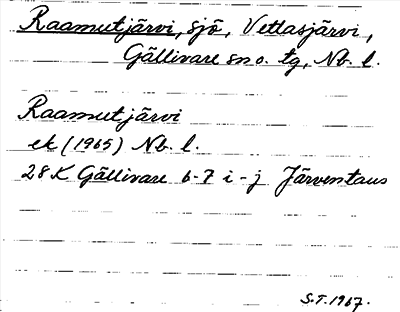 Raamutjärvi, sjö, Vettasjärvi,
Gällivare sn o. tg, Nb. l.
Raamutjärvi
ek (1965) Nb. l.
28K Gällivare 6-7 i-j Järventaus
S.T. 1967.